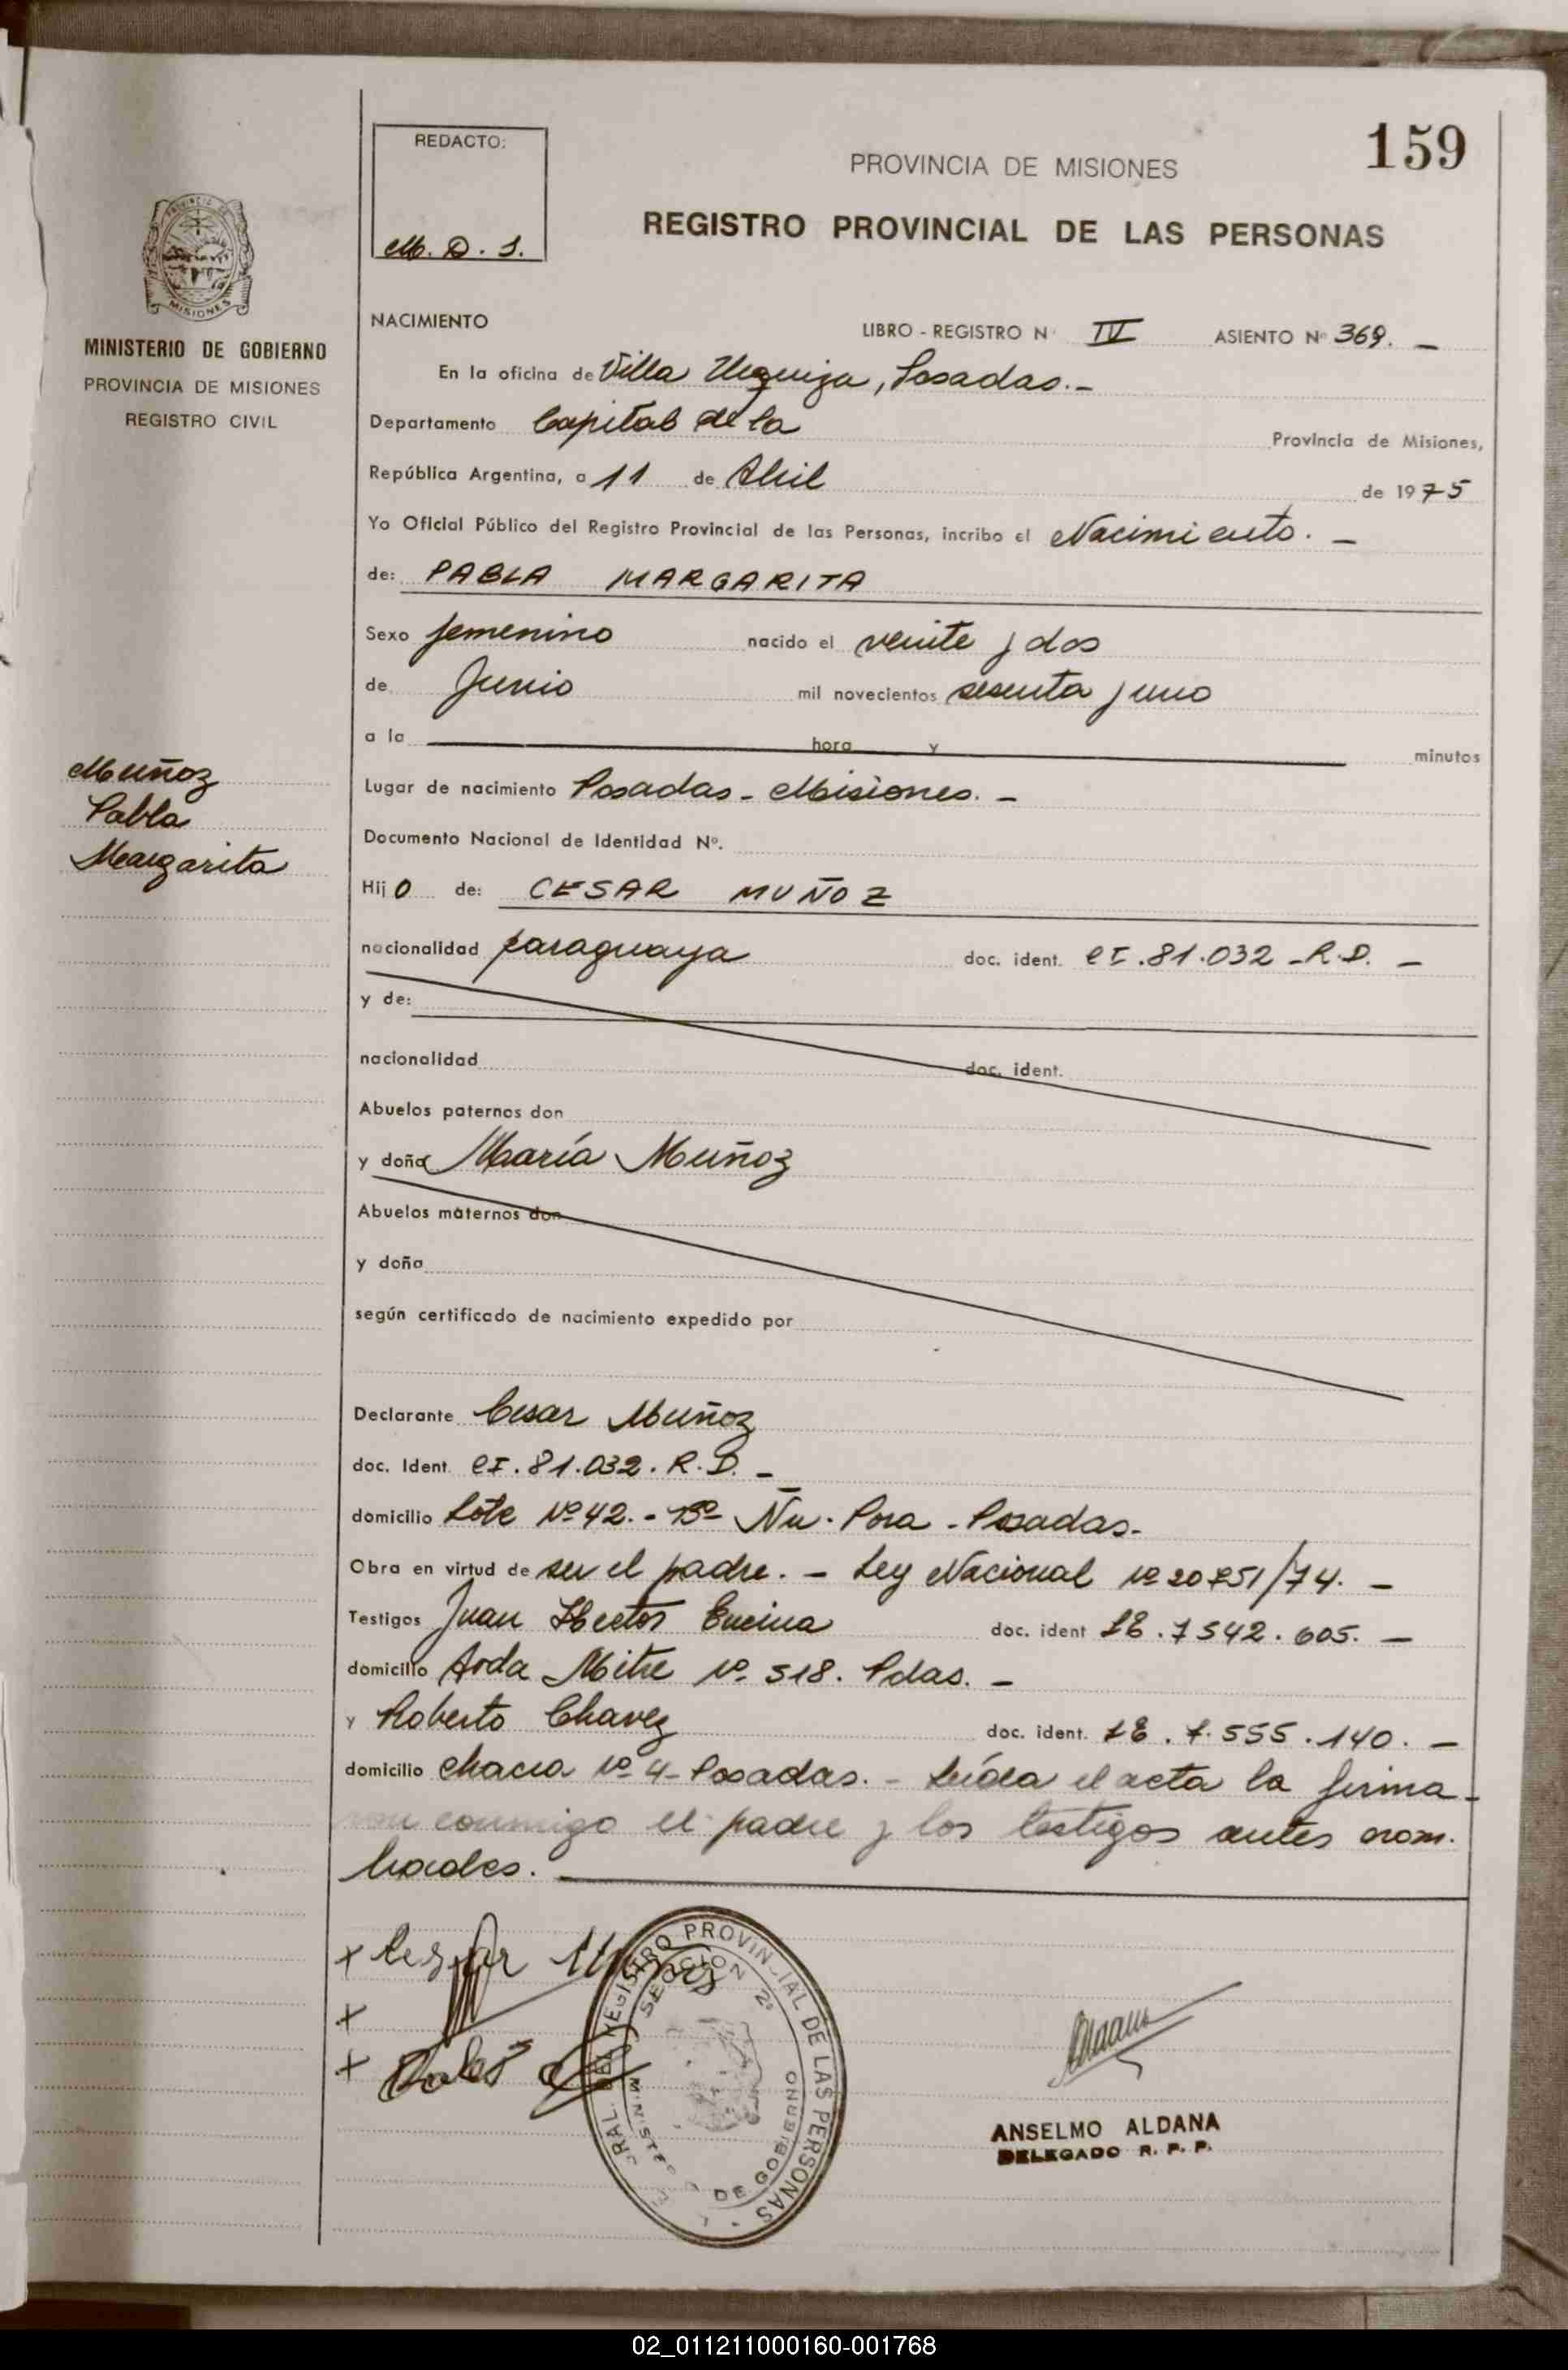 159
REDACTO:
M. D. S.
PROVINCIA DE MISIONES
REGISTRO PROVINCIAL DE LAS PERSONAS
PROVINCIA DE MISIONES
MINISTERIO DE GOBIERNO
PROVINCIA DE MISIONES
REGISTRO CIVIL
Muñoz
Pabla
Margarita
NACIMIENTO LIBRO - REGISTRO N° IV ASIENTO N° 369. —
En la oficina de Villa Urquiza, Posadas.-
Departamento Capital de la Provincia de Misiones,
República Argentina, a 11 de Abril de 1975
Yo Oficial Público del Registro Provincial de las Personas, incribo el Nacimiento. —
de: PABLA MARGARITA
Sexo femenino nacido el veinte y dos
de Junio mil novecientos sesenta y uno
a la hora y minutos
Lugar de nacimiento Posadas - Misiones. —
Documento Nacional de Identidad N°.
Hij0 de: CESAR MUÑOZ
nacionalidad paraguaya doc. ident. CI.81.032 - R.P. —
y de:
nacionalidad doc. ident.
Abuelos paternos don
y doña María Muñoz
Abuelos maternos don
y doña
según certificado de nacimiento expedido por
Declarante Cesar Muñoz
doc. Ident. CI.81.032. R.P. —
domicilio Lote Nº 42. - Bº Ñu - Pora - Posadas-
Obra en virtud de ser el padre. — Ley Nacional Nº 20751/74. —
Testigos Juan Hector Encina doc. ident 7542.605. —
domicilio Avda Mitre Nº 518. Pdas. —
y Roberto Chavez doc. ident. 7.555.140. —
domicilio Chacra Nº 4 - Posadas. - Leída el acta la firma-
ron conmigo el padre y los testigos antes nom-
brados.
x Cesar Muñoz
x
x
REGISTRO PROVINCIAL DE LAS PERSONAS
SECCION 2ª
MINISTERIO DE GOBIERNO
ANSELMO ALDANA
DELEGADO R. P. P.
02_011211000160-001768